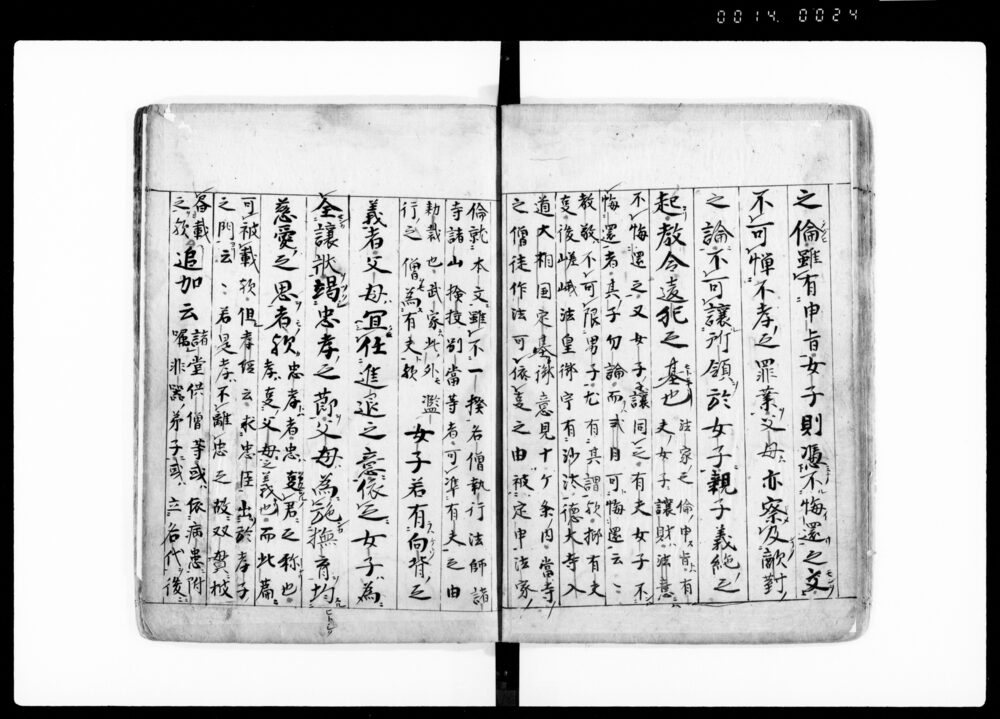 0014. 0024
之倫雖有申旨女子則憑不悔還之文
不可憚不孝之罪業父母亦察及敵對
之論不可讓所領於女子親子義絶之
起教令違犯之基也 法家之倫申旨有
夫女子讓財法意
不悔還之又女子讓同之有夫女子不
悔還者其子勿論而式目可悔還云々
教敬不可限男子尤有其謂歟抑有夫
妻後嵯峨法皇御宇有沙汰德大寺入
道大相国定基御意見十ケ条内當寺
之僧徒作法可依妻之由被定申法家
倫就本文雖不一揆名僧執行法師諸
寺諸山檢校別當等者可准有夫之由
勅裁也武家此外濫
行之僧為有夫歟 女子若有向背之
義者父母宜任進退之意依之女子為
全讓状竭忠孝之節父母為施撫育均
慈愛之思者歟 忠孝者忠君之称也
孝妻父母之義也而此篇
可被載歟但孝經云求忠臣出於孝子
之門云々若是孝不離忠之故双賛被
畓載之歟 追加云 諸堂供僧等或依病患附
嘱非器弟子或立名代後